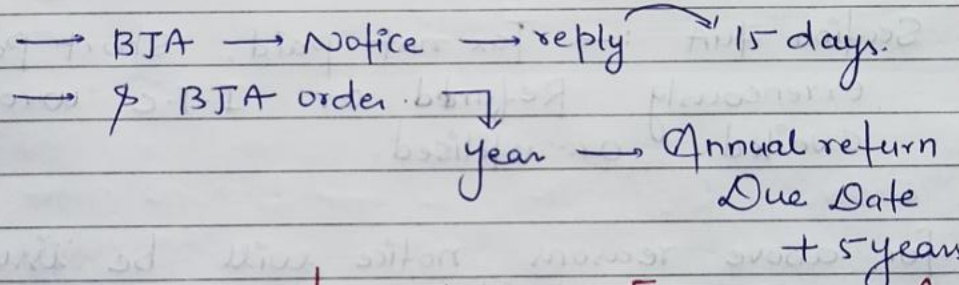 → BJA → Notice → reply → 15 days.
→ BJA order.
year → Annual return
Due Date
+ 5 years